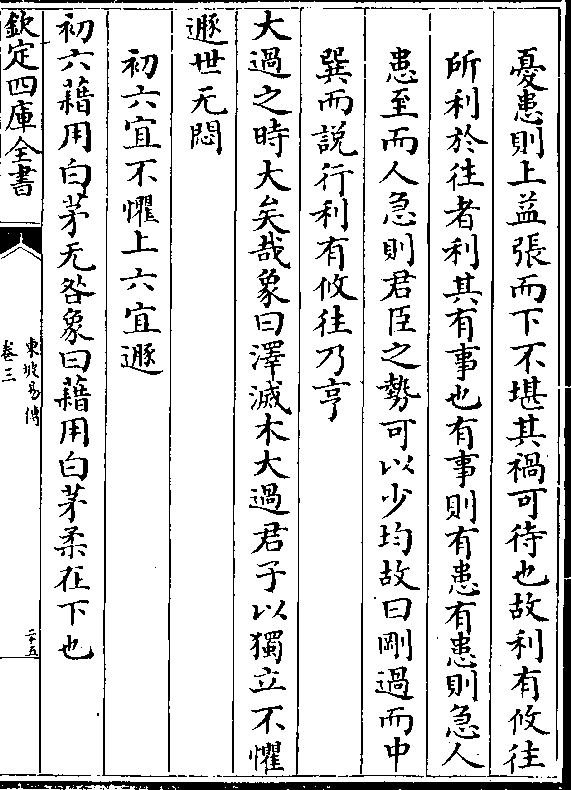 憂患則上益張而下不堪其禍可待也故利有攸往
所利於往者利其有事也有事則有患有患則急人
患至而人急則君臣之勢可以少均故曰剛過而中
巽而說行利有攸往乃亨
大過之時大矣哉象曰澤滅木大過君子以獨立不懼
遯世无悶
初六宜不懼上六宜遯
初六藉用白茅无咎象曰藉用白茅柔在下也
欽定四庫全書
東坡易傳
卷三
二十五